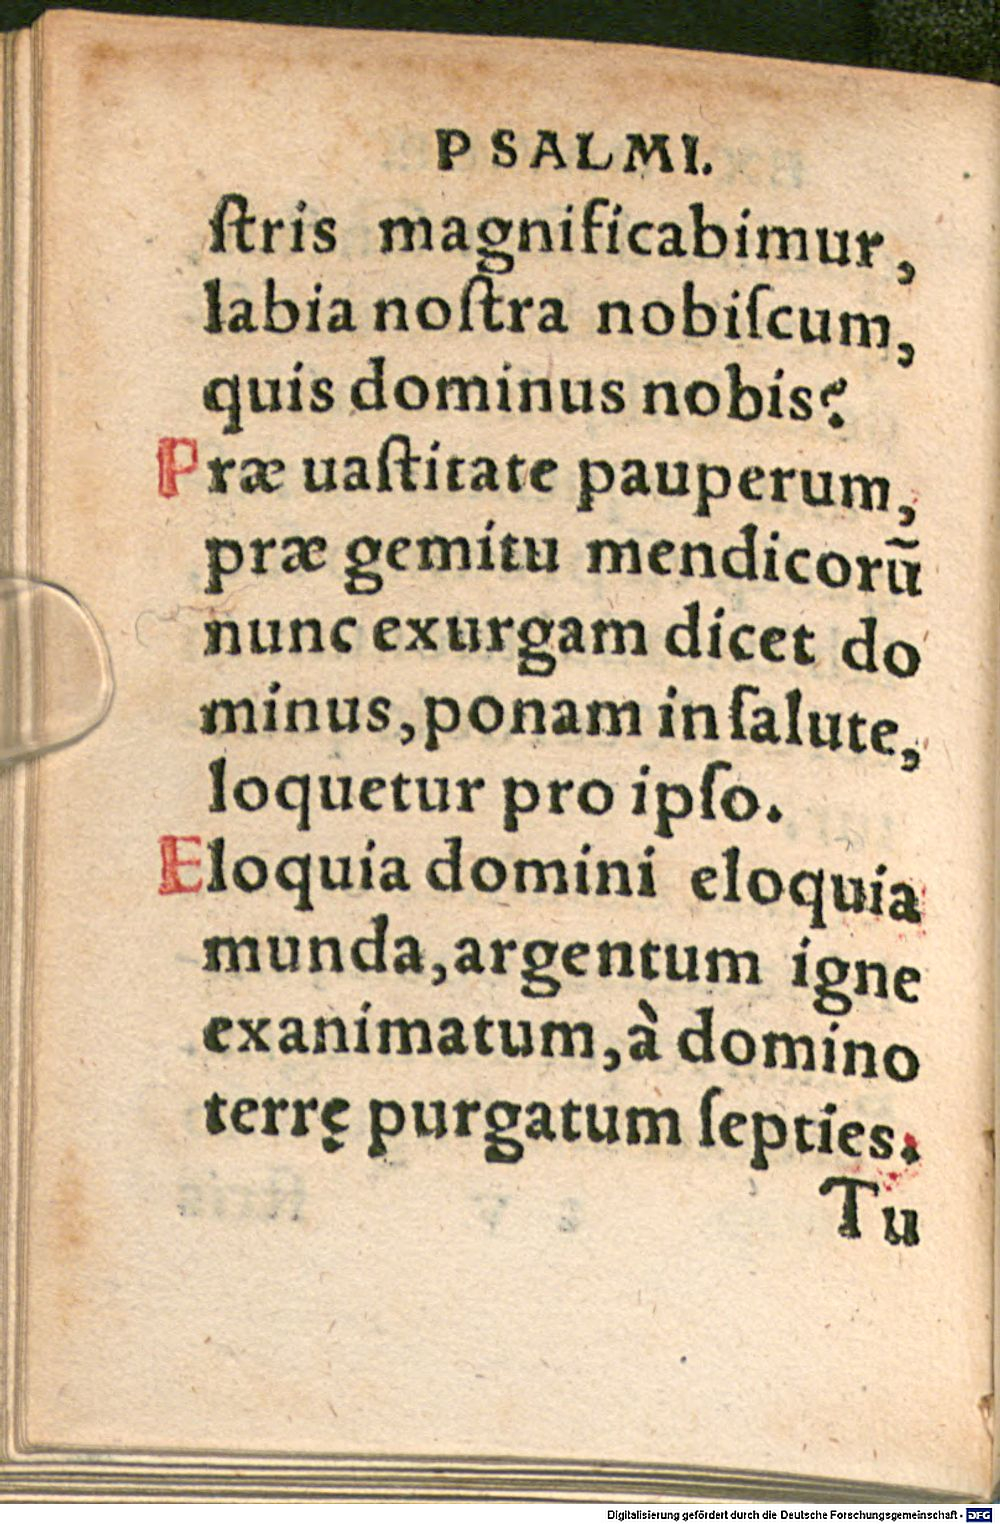 PSALMI.
ſtris magnificabimur,
labia noſtra nobiſcum,
quis dominus nobis?
Præ uaſtitate pauperum,
præ gemitu mendicorū
nunc exurgam dicet do
minus, ponam in ſalute,
loquetur pro ipſo.
Eloquia domini eloquia
munda, argentum igne
exanimatum, à domino
terrę purgatum ſepties.
Tu
Digitalisierung gefördert durch die Deutsche Forschungsgemeinschaft - DFG